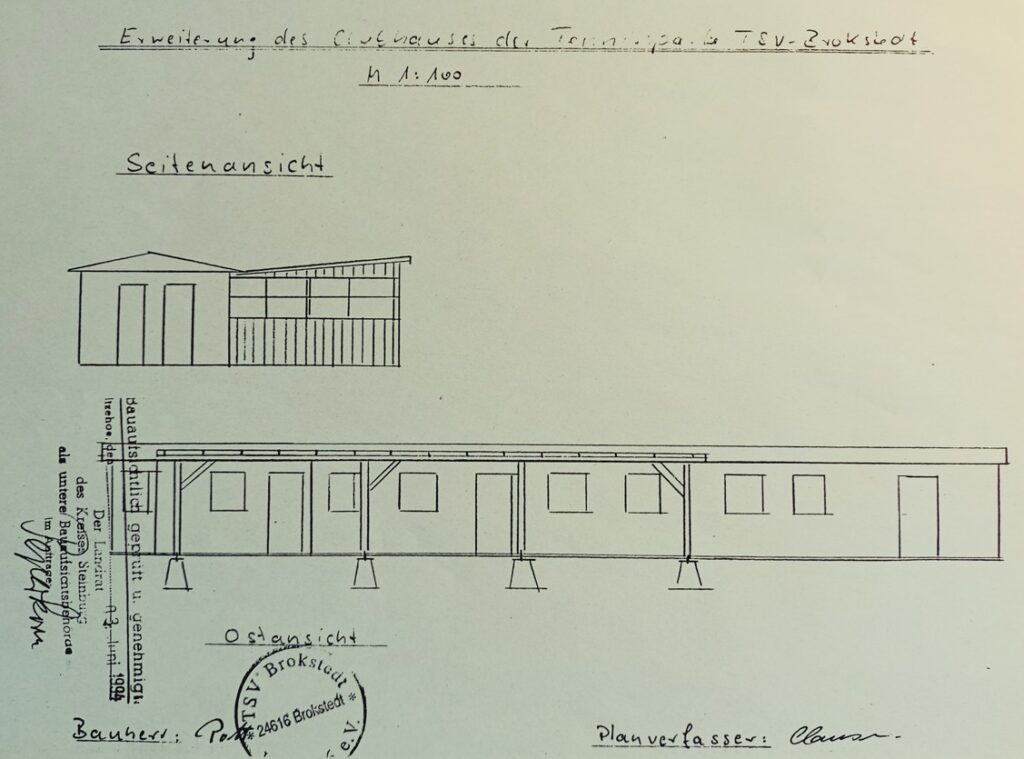 Erweiterung des Clubhauses der Tennissparte TSV-Brokstedt
M 1:100
Seitenansicht
Bauaufsichtlich geprüft u. genehmigt.
Itzehoe, den 03. Juni 1994
Der Landrat
des Kreises Steinburg
als untere Bauaufsichtsbehörde
im Auftrage
Ostansicht
TSV Brokstedt e.V.
* 24616 Brokstedt *
Bauherr:
Planverfasser: